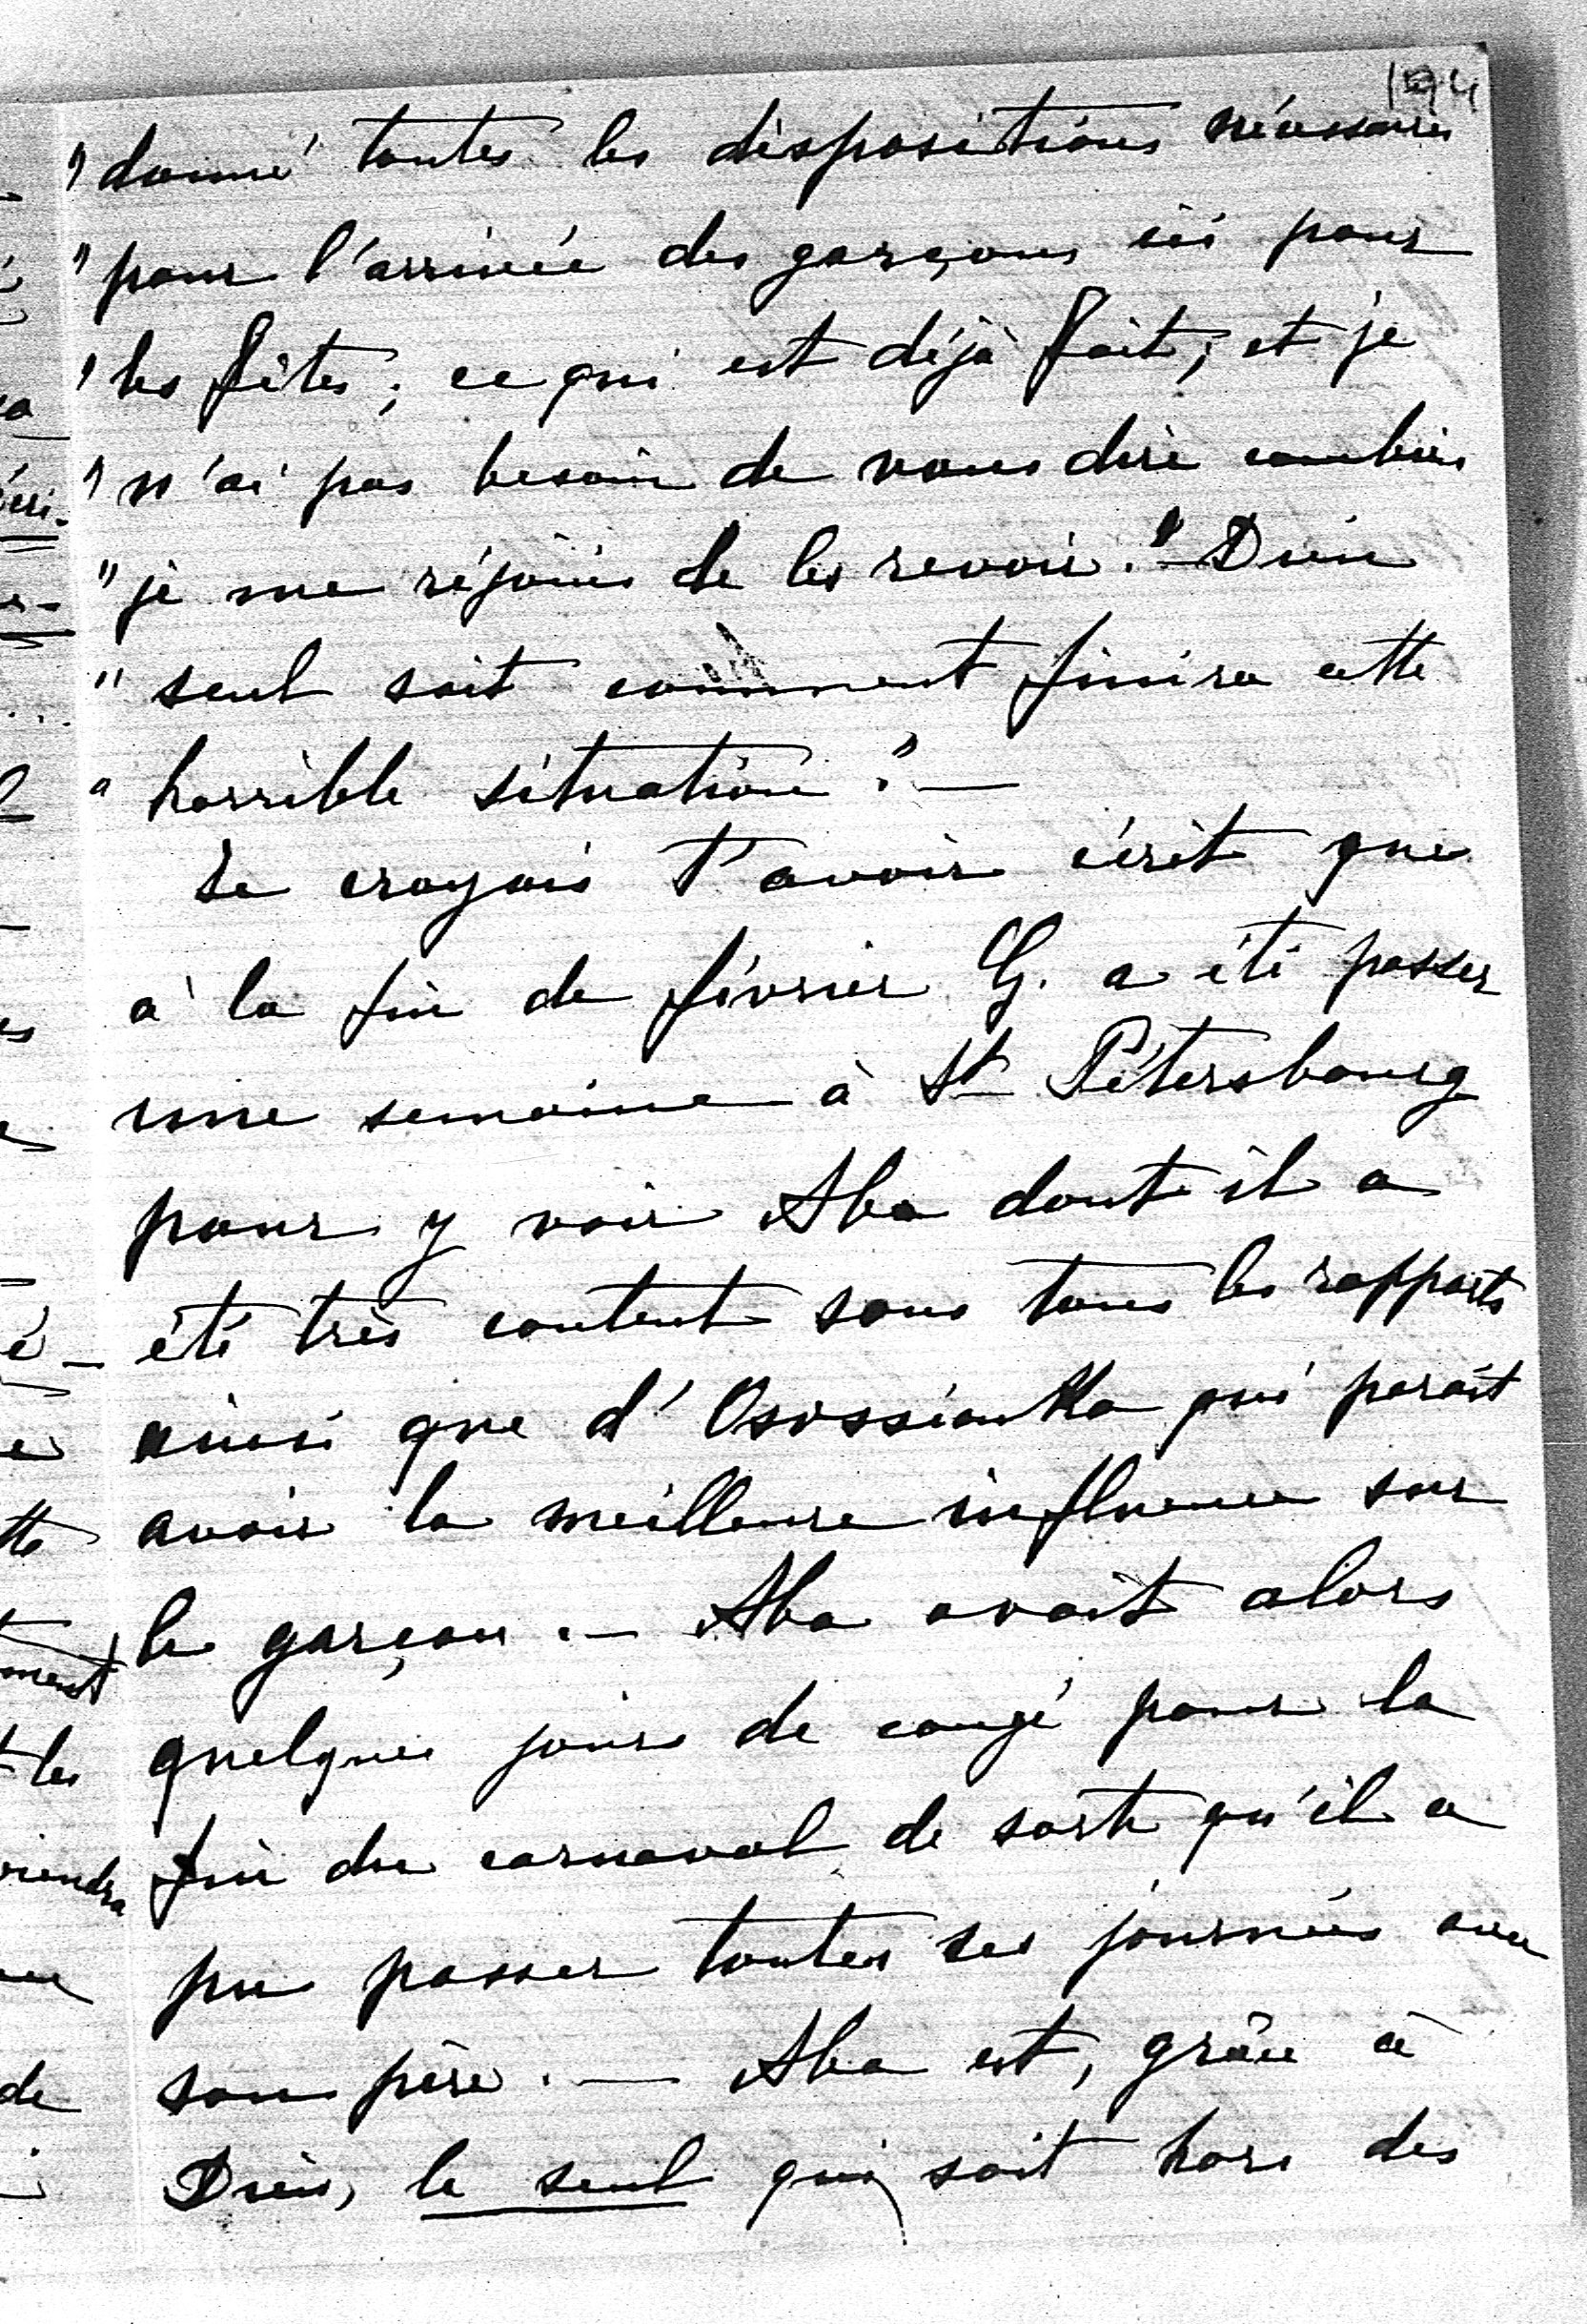 194
"donné toutes les dispositions nécessaires
"pour l'arrivée des garçons ici pour
"les fêtes; ce qui est déjà fait; et je
"n'ai pas besoin de vous dire combien
"je me réjouis de les revoir." Dieu
"seul sait comment finira cette
"horrible situation". —
Je croyais t'avoir écrit que
à la fin de février G. a été passer
une semaine à St Pétersbourg
pour y voir Aba dont il a
été très content sous tous les rapports
ainsi que d'Osossianka qui paraît
avoir la meilleure influence sur
le garçon. — Aba avait alors
quelques jours de congé pour la
fin du carnaval de sorte qu'il a
pu passer toutes ses journées avec
son père. — Aba est, grâce à
Dieu, le seul qui soit hors des